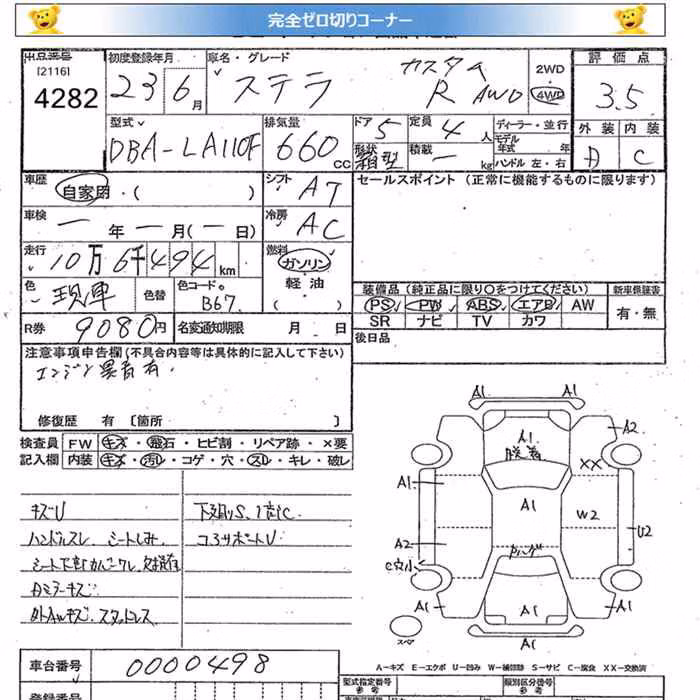 完全ゼロ切りコーナー
出品番号
[2116]
4282
初度登録年月
23 6月
車名・グレード
ステラ
カスタム
R AWD
2WD
4WD
評価点
3.5
型式
DBA-LA110F
排気量
660 CC
ドア 5
定員 4 人
形状 箱型
積載 ー kg
ディーラー・並行
モデル年式 年
ハンドル 左・右
外装 内装
A C
車歴
自家用・( )
シフト AT
車検
一 年 一 月(一 日)
冷房 AC
走行
10万6千494 km
燃料
ガソリン
軽油
( )
色
現車
色替
色コード。
B67
R券 9080円
名変通知期限 月 日
セールスポイント (正常に機能するものに限ります)
装備品(純正品に限り○をつけてください)
新車保証書
PS PW ABS エアB AW
SR ナビ TV カワ
有・無
後日品
注意事項申告欄(不具合内容等は具体的に記入して下さい)
エンジン異音有
修復歴 有 〔箇所 〕
検査員 FW キズ・飛石・ヒビ割・リペア跡・×要
記入欄 内装 キズ・汚レ・コゲ・穴・スレ・キレ・破レ
キズU
ハンドルスレ、シートしみ
Aミラーキズ
外AWキズ、スタッドレス
下廻りS、1部C
コアサポートU
A1 A1
A1
A2
XX
A1
A1
W2
U2
A2
C穴小
A1
A1
A1
A1
スペア
A-キズ E-エクボ U-凹み W-補修跡 S-サビ C-腐食 XX-交換済
車台番号 0000498
登録番号
型式指定番号
参考
類別区分番号
参考